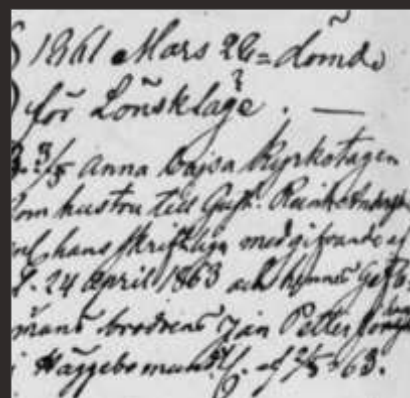 1861 Mars 26 = dömd
för Lönsklage. —
3/5 Anna Cajsa Kyrkotagen
som hustru till Gust. Reinh.
enl hans skriftliga medgifvande af
d. 24 April 1863 och hennes
mans brodrens Jan Petter
i Häggebo af 2/5 63.